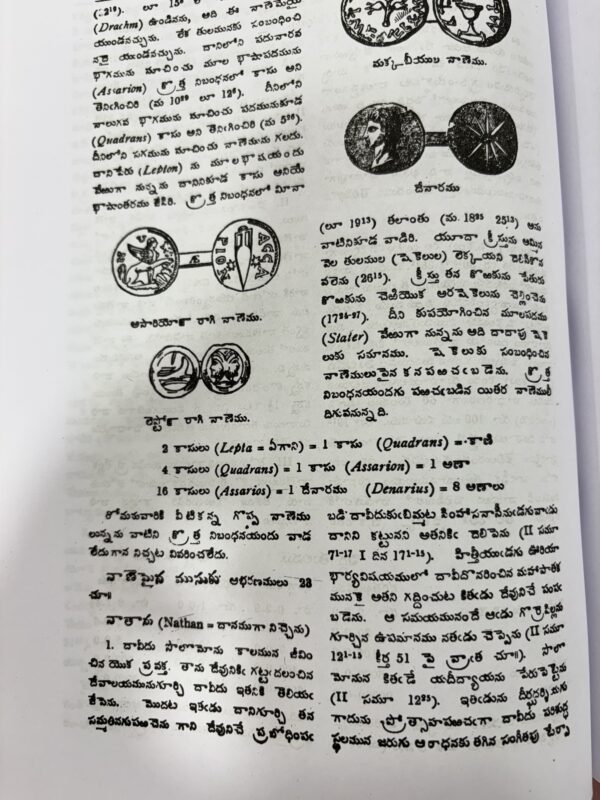 (Drachm) ఉండిన, అది ఈ నాణెమైయె
యుండవచ్చును. లేక తులమునకు సంబంధించి
నదై యుండవచ్చును. దానిలోని పదునారవ
భాగమును సూచించు మూల భాషాపదమును
(Assarion) క్రొత్త నిబంధనలో కాసు అని
తెనిఁగించిరి (మ 10²⁹ లూ 12⁶). దీనిలోని
నాలుగవ భాగమును సూచించు పదమునుకూడ
(Quadrans) కాసు అని తెనిఁగించిరి (మ 5²⁶).
దీనిలోని సగమును సూచించు నాణెమును గలదు.
దానిపేరు (Lepton) ను మూలభాషయందు
వేఱుగా నున్నను దానినికూడ కాసు అనియే
భాషాంతరము జేసిరి. క్రొత్త నిబంధనలో మీనా
ΑϹϹΑ
ΡΙΟΝ
అసారియోను రాగి నాణెము.
లెప్టోను రాగి నాణెము.
మక్కబీయుల నాణెము.
దేనారము
(లూ 19¹³) తలాంతు (మ. 18²⁵ 25¹³) అను
వాటినికూడ వాడిరి. యూదా క్రీస్తును అమ్మిన
వెల తులముల (షెకెలుల) లెక్కయని తెలిసికొన
వలెను (26¹⁵). క్రీస్తు తన కొఱకును పేతురు
కొఱకును చెఱియొక అరషెకెలును చెల్లించెను
(17²⁶-²⁷). దీని కుపయోగించిన మూలపదము
(Stater) వేఱుగా నున్నను అది దాదాపు షెకె
లుకు సమానము. షెకెలుకు సంబంధించిన
నాణెములుపైన కనపఱచఁబడెను. క్రొత్త
నిబంధనయందగు పఱచఁబడిన యితర నాణెములీ
దిగువనున్నది.
2 కాసులు (Lepta = ఏగాని) = 1 కాసు (Quadrans) = కాణి
4 కాసులు (Quadrans) = 1 కాసు (Assarion) = 1 అణా
16 కాసులు (Assarios) = 1 దేనారము (Denarius) = 8 అణాలు
రోమువారికి వీటికన్న గొప్ప నాణెము
లున్నను వాటిని క్రొత్త నిబంధనయందు వాడ
లేదు గాన నిచ్చట వివరించలేదు.
నాణెమైన ముసుకు ఆభరణములు 23
చూ॥
నాతాను (Nathan = దానముగా నిచ్చెను)
1. దావీదు సొలొమోను కాలమున జీవిం
చిన యొక ప్రవక్త. తాను దేవునికిఁ గట్టఁదలంచిన
దేవాలయమునుగూర్చి దావీదు ఇతనికి తెలియఁ
జేసెను. మొదట ఇతఁడు దానిగూర్చి తన
సమ్మతినగుపఱచెను గాని దేవునిచే ప్రబోధింపఁ
బడి దావీదుకుఁబిమ్మట సింహాసనాసీనుఁడగువాఁడు
దానిని కట్టునని అతనికిఁ దెలిపెను (II సమూ
7¹-¹⁷ I దిన 17¹-¹⁵). హిత్తీయుఁడగు ఊరియా
భార్యవిషయములో దావీదొనరించిన మహాపాతక
మునకై అతని గద్దించుట కితఁడు దేవునిచే పంపఁ
బడెను. ఆ సమయమునందే ఆఁడు గొఱ్ఱెపిల్లను
గూర్చిన ఉపమానము నతఁడు చెప్పెను (II సమూ
12¹-¹⁵ కీర్త 51 పై వ్రాఁత చూ॥). సొలొ
మోనున కితఁడే యదీద్యాయను పేరుపెట్టెను
(II సమూ 12²⁵). ఇతఁడును దీర్ఘదర్శియగు
గాదును ప్రోత్సాహపఱచఁగా దావీదు పరిశుద్ధ
స్థలమున జరుగు ఆరాధనకు తగిన సంగీతపు